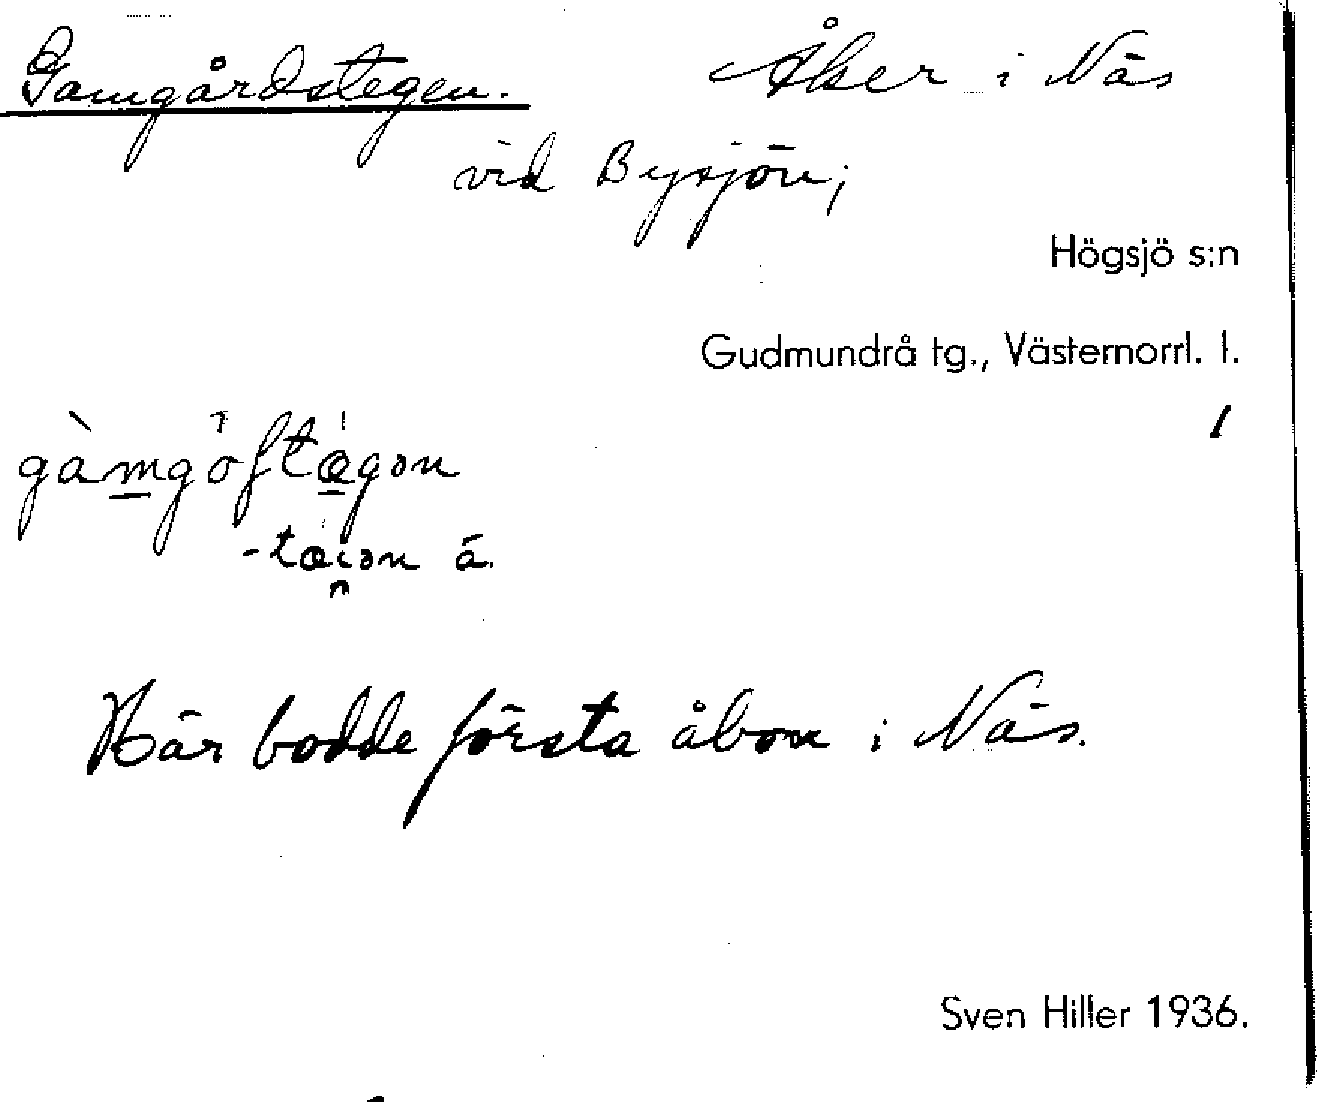 Gamgårdstegen. Åker i Näs
vid Bysjön;
Högsjö s:n
Gudmundrå tg., Västernorrl. l.
1
gàmgöftægən
-tæiən ä.
Här bodde första åbon i Näs.
Sven Hiller 1936.